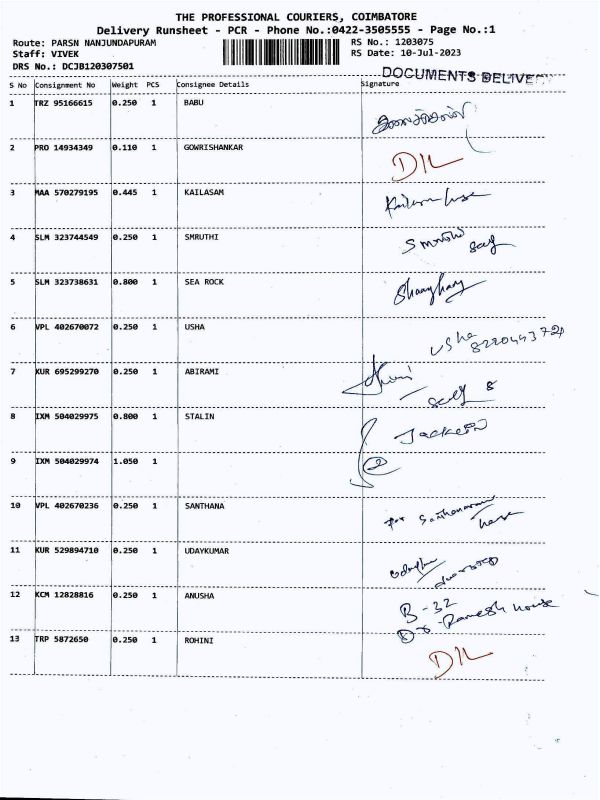 THE PROFESSIONAL COURIERS, COIMBATORE
Delivery Runsheet - PCR - Phone No.:0422-3505555 - Page No.:1
Route: PARSN NANJUNDAPURAM RS No.: 1203075
Staff: VIVEK RS Date: 10-Jul-2023
DRS No.: DCJB120307501
DOCUMENTS DELIVERY
S No Consignment No Weight PCS Consignee Details Signature
1 TRZ 95166615 0.250 1 BABU
2 PRO 14934349 0.110 1 GOWRISHANKAR D/L
3 MAA 570279195 0.445 1 KAILASAM
4 SLM 323744549 0.250 1 SMRUTHI Smruthi self
5 SLM 323738631 0.800 1 SEA ROCK
6 VPL 402670072 0.250 1 USHA Usha
7 KUR 695299270 0.250 1 ABIRAMI self
8 IXM 504029975 0.800 1 STALIN
9 IXM 504029974 1.050 1
10 VPL 402670236 0.250 1 SANTHANA
11 KUR 529894710 0.250 1 UDAYKUMAR
12 KCM 12828816 0.250 1 ANUSHA B-32
Ramesh house
13 TRP 5872650 0.250 1 ROHINI D/L